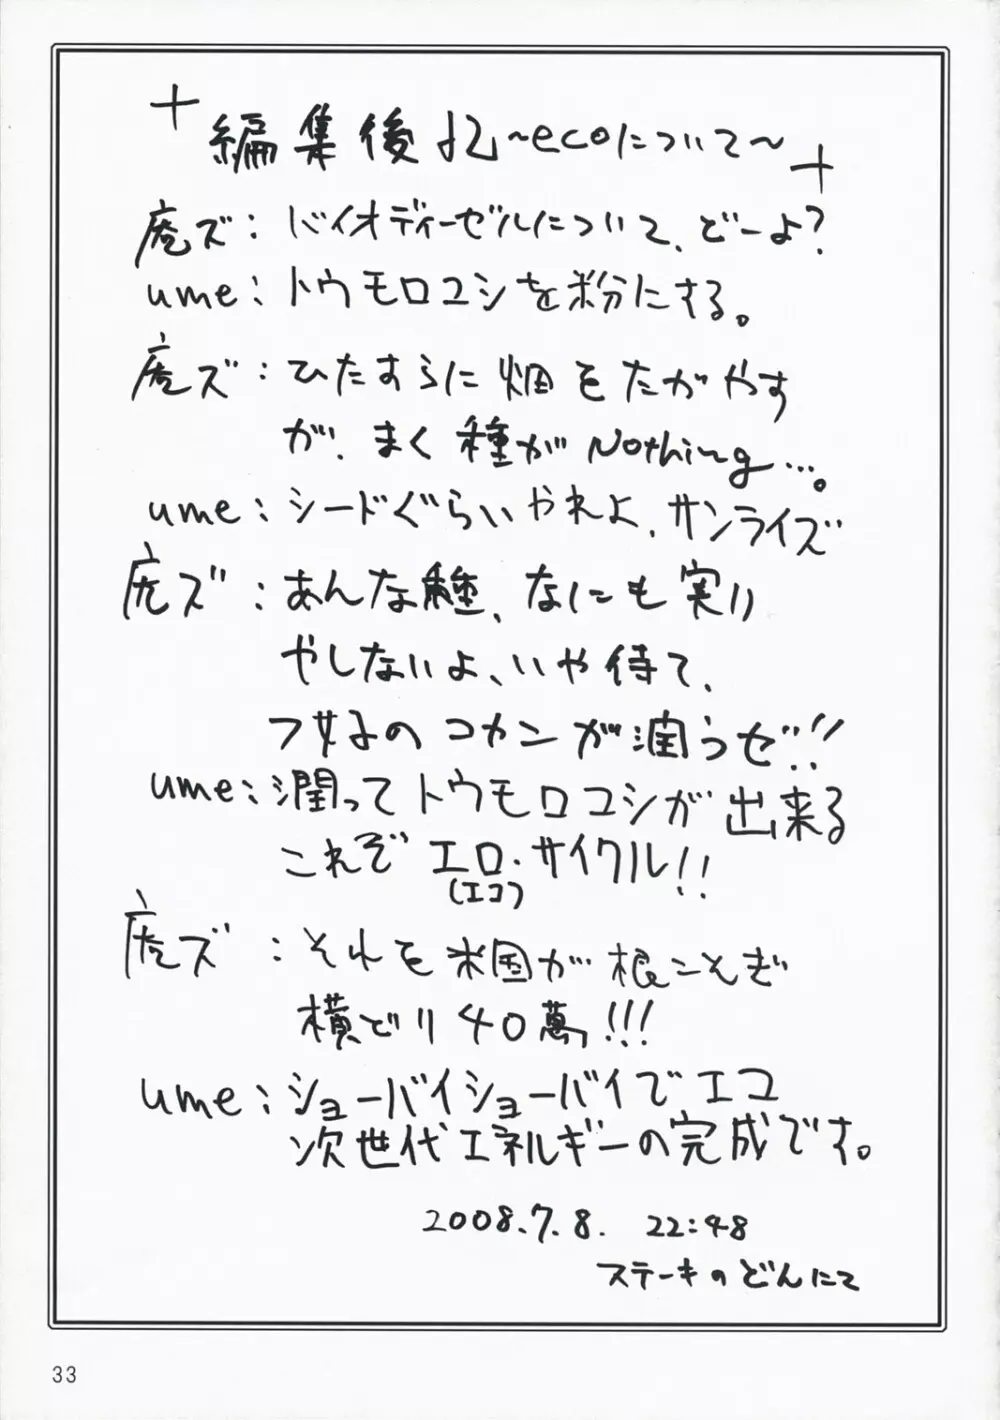 編集後記～ecoについて～
虎ズ：バイオディーゼルについて、どーよ?
ume：トウモロコシを粉にする。
虎ズ：ひたすらに畑をたがやす
が、まく種がNothing…。
ume：シードぐらいやれよ、サンライズ
虎ズ：あんな種、なにも実り
やしないよ、いや待て、
フ女子のコカンが潤うゼ!!
ume：潤ってトウモロコシが出来る
これぞエロ・サイクル!!
(エコ)
虎ズ：それを米国が根こそぎ
横どり40萬!!!
ume：ショーバイショーバイでエコ
次世代エネルギーの完成です。
2008.7.8. 22:48
ステーキのどんにて
33